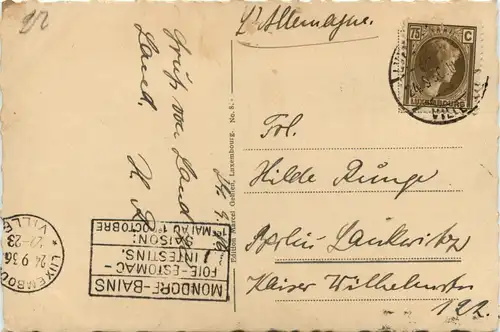 L'Allemagne.
75 C
LUXEMBOURG
VILLE
Frl.
Hilde Runge
Berlin Lankwitz
Kaiser Wilhelmstr
122.
Land.
Edition Marcel Geisen, Luxembourg. No. 8.
MONDORF-BAINS
FOIE-ESTOMAC-
INTESTINS.
SAISON:
1er MAI AU 1er OCTOBRE
LUXEMBOURG
VILLE
24 9 36
22-23